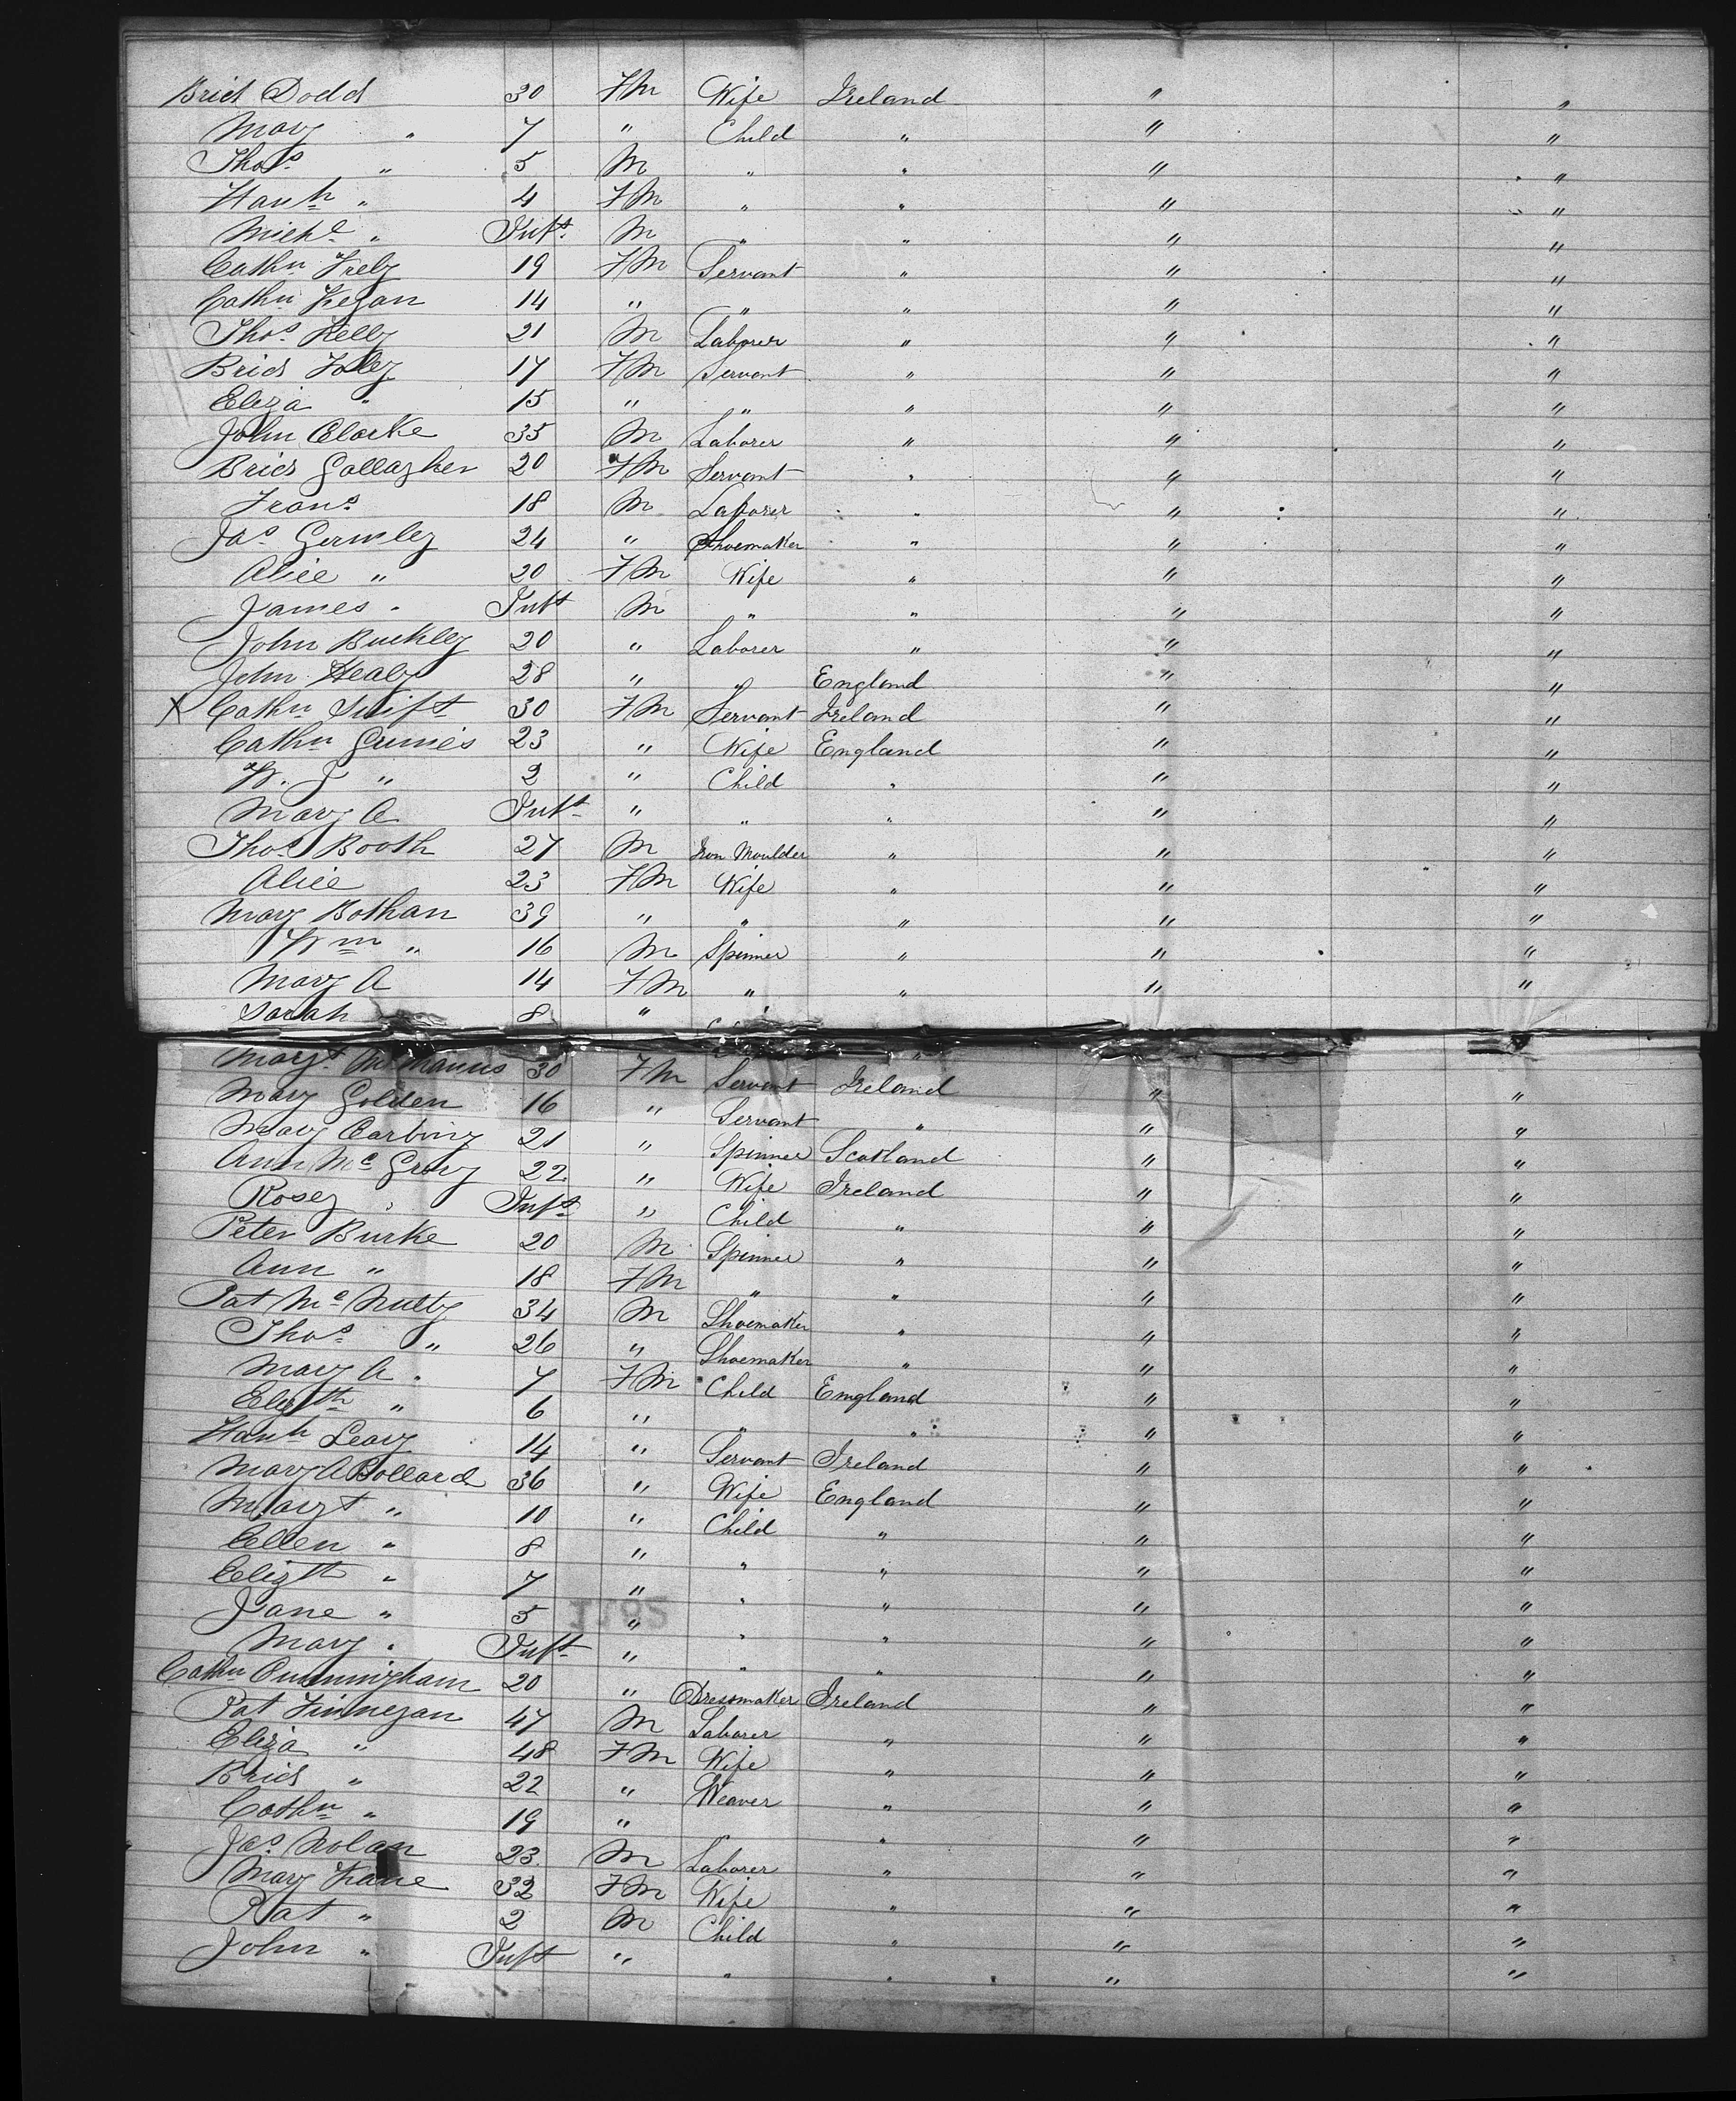 Brid Dodd 30 FM Wife Ireland " "
Mary " 7 " Child " " "
Thos " 5 M " " " "
Hanh " 4 FM " " " "
Michl " Inft M " " " "
Cathn 19 FM Servant " " "
Cathn Kegan 14 " " " " "
Thos Kelly 21 M Laborer " " "
Brid Foley 17 FM Servant " " "
Eliza " 15 " " " " "
John Clarke 35 M Laborer " " "
Brid Gallagher 20 FM Servant " " "
Frans 18 M Laborer " " "
Jas Gormley 24 " Shoemaker " " "
Alice " 20 FM Wife " " "
James " Inft M " " " "
John Buckley 20 " Laborer " " "
John Healy 28 " " England " "
X Cathn Swift 30 FM Servant Ireland " "
Cathn 23 " Wife England " "
W. J " 2 " Child " " "
Mary A Inft " " " " "
Thos Booth 27 M Iron Moulder " " "
Alice 23 FM Wife " " "
Mary Bothan 39 " " " " "
Wm " 16 M Spinner " " "
Mary A 14 FM " " " "
Sarah 8 "
Margt McManus 30 FM Servant Ireland " "
Mary Golden 16 " Servant " " "
Mary 21 " Spinner Scotland " "
Ann Mc 22 " Wife Ireland " "
Rosey " Inft " Child " " "
Peter Burke 20 M Spinner " " "
Ann " 18 FM " " " "
Pat McNulty 34 M Shoemaker " " "
Thos " 26 " Shoemaker " " "
Mary A " 7 FM Child England " "
Elizth " 6 " " " " "
Hanh Leary 14 " Servant Ireland " "
Mary A Bollard 36 " Wife England " "
Margt " 10 " Child " " "
Ellen " 8 " " " " "
Elizth " 7 " " " " "
Jane " 5 " " " " "
Mary " Inft " " " " "
Cathn Cunningham 20 " Dressmaker Ireland " "
Pat Finnegan 47 M Laborer " " "
Eliza " 48 FM Wife " " "
Brid " 22 " Weaver " " "
Cathn " 19 " " " "
Jas Nolan 23 M Laborer " " "
Mary Kane 32 FM Wife " " "
Pat " 2 M Child " " "
John " Inft " " " " "